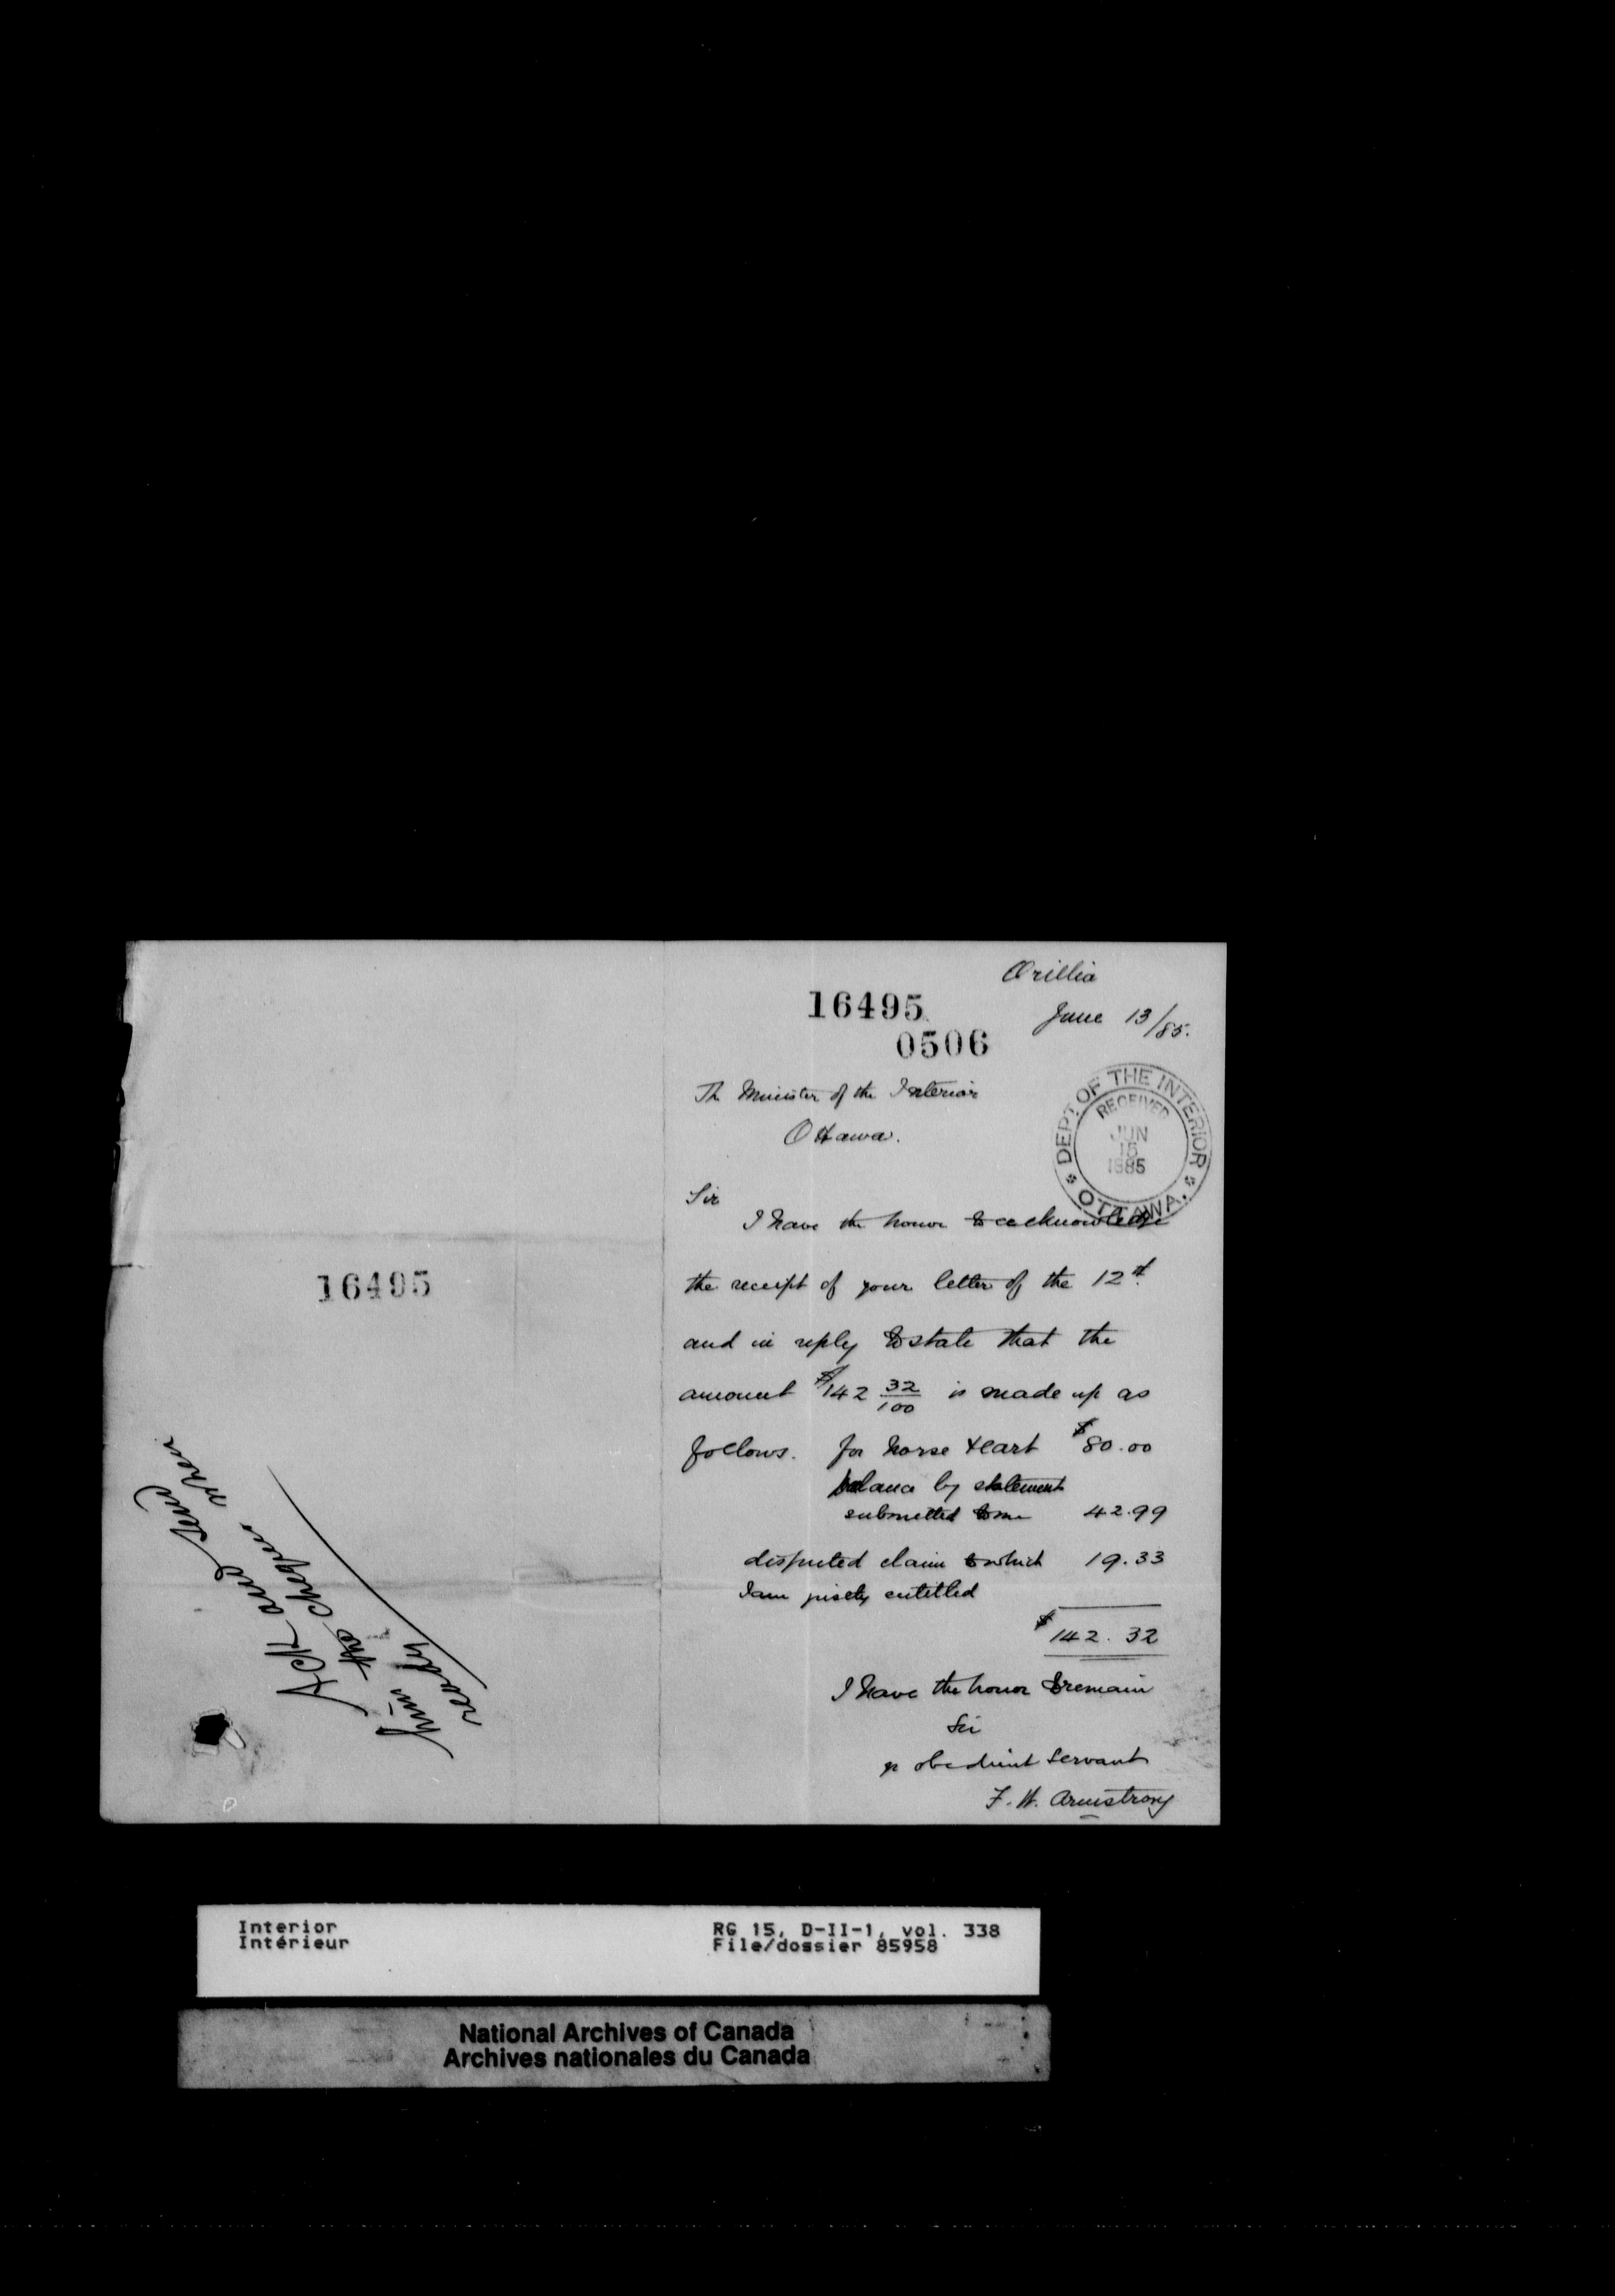 16495
Ack and send
him the cheque when
ready
Orillia
June 13/85.
16495
0506
DEPT OF THE INTERIOR
RECEIVED
JUN
15
1885
OTTAWA.
The Minister of the Interior
Ottawa.
Sir
I have the honor to acknowledge
the receipt of your letter of the 12th
and in reply to state that the
amount $142 32/100 is made up as
follows. for horse & cart $80.00
balance by statement
submitted to me 42.99
disputed claim to which 19.33
I am justly entitled
$142.32
I have the honor to remain
Sir
yr obedient servant
F. H. Armstrong
Interior
Intérieur
RG 15, D-II-1, vol. 338
File/dossier 85958
National Archives of Canada
Archives nationales du Canada